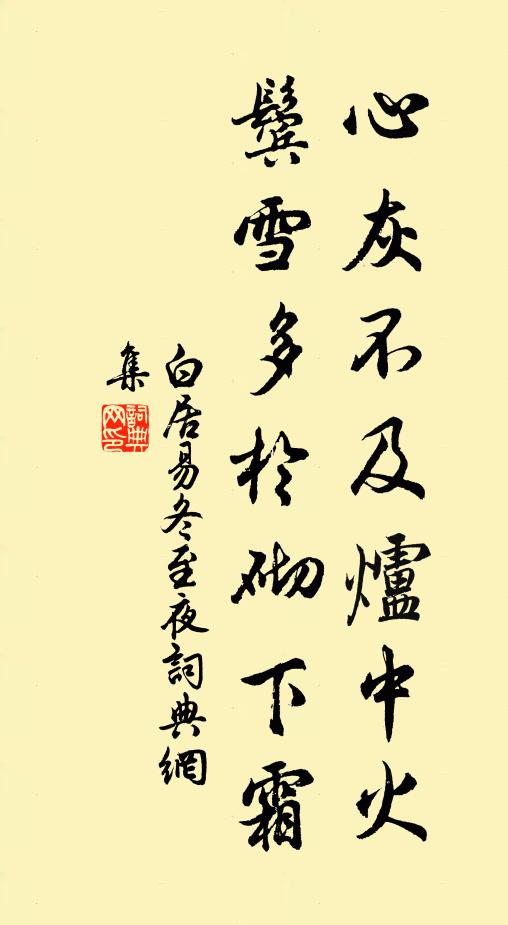 心灰不及爐中火
鬢雪多於砌下霜
白居易冬至夜詞典網
集
詞典
网印